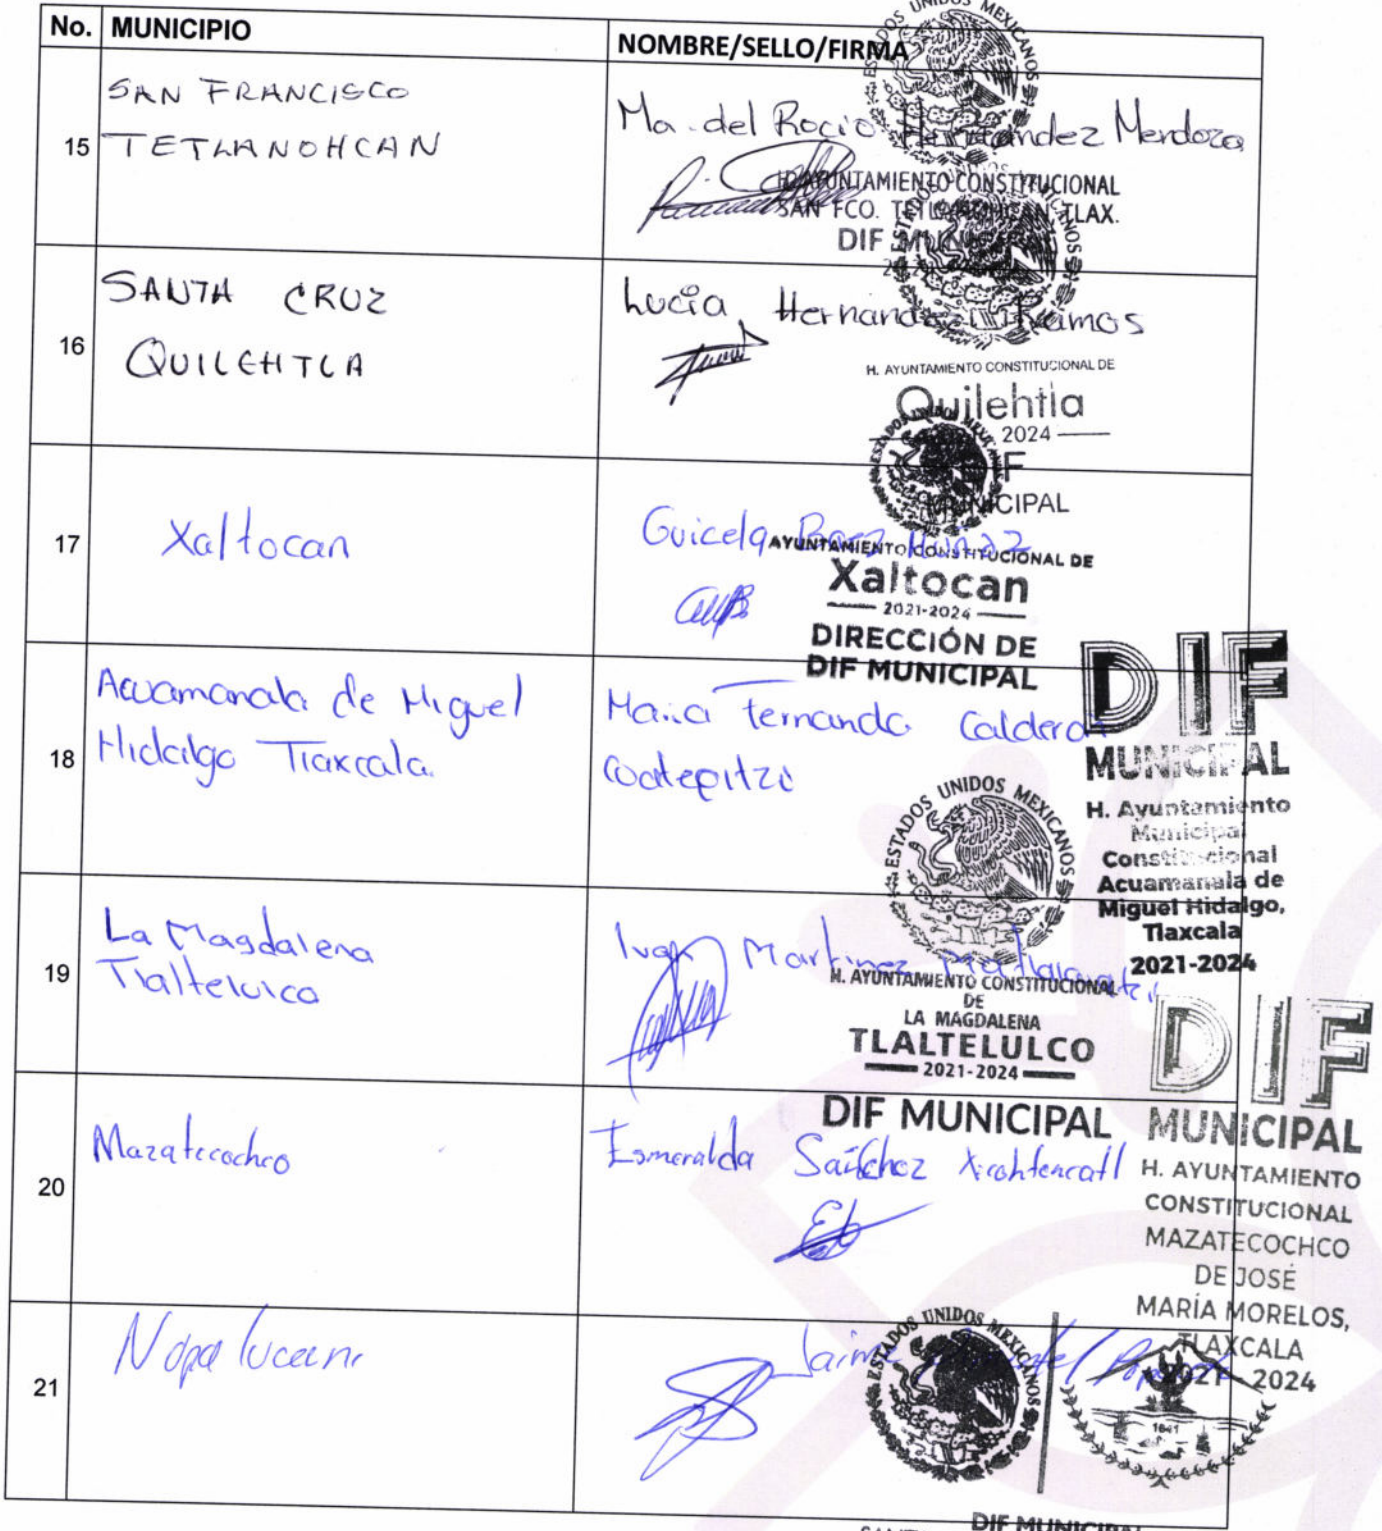 No. MUNICIPIO NOMBRE/SELLO/FIRMA
15
SAN FRANCISCO
TETLANOHCAN
Ma. del Rocio Hernandez Mendoza
UNIDOS MEXICANOS
H. AYUNTAMIENTO CONSTITUCIONAL
SAN FCO. TETLANOHCAN, TLAX.
DIF MUNICIPAL
16
SANTA CRUZ
QUILEHTLA
Lucia Hernandez Ramos
H. AYUNTAMIENTO CONSTITUCIONAL DE
Quilehtla
2024
DIF
MUNICIPAL
17
Xaltocan
Guicela
AYUNTAMIENTO CONSTITUCIONAL DE
Xaltocan
2021-2024
DIRECCIÓN DE
DIF MUNICIPAL
18
Acuamanala de Miguel
Hidalgo Tlaxcala.
Maria Fernanda Calderon
Coatepitzi
DIF
MUNICIPAL
H. Ayuntamiento
Municipal
Constitucional
Acuamanala de
Miguel Hidalgo,
Tlaxcala
2021-2024
19
La Magdalena
Tlaltelulco
Ivan Martinez
ESTADOS UNIDOS MEXICANOS
H. AYUNTAMIENTO CONSTITUCIONAL
DE
LA MAGDALENA
TLALTELULCO
2021-2024
DIF MUNICIPAL
20
Mazatecochco
Esmeralda Sánchez Xicohtencatl
DIF
MUNICIPAL
H. AYUNTAMIENTO
CONSTITUCIONAL
MAZATECOCHCO
DE JOSÉ
MARÍA MORELOS,
TLAXCALA
2021 - 2024
21
Nopalucan
Jaime
ESTADOS UNIDOS MEXICANOS
1841
DIF MUNICIPAL